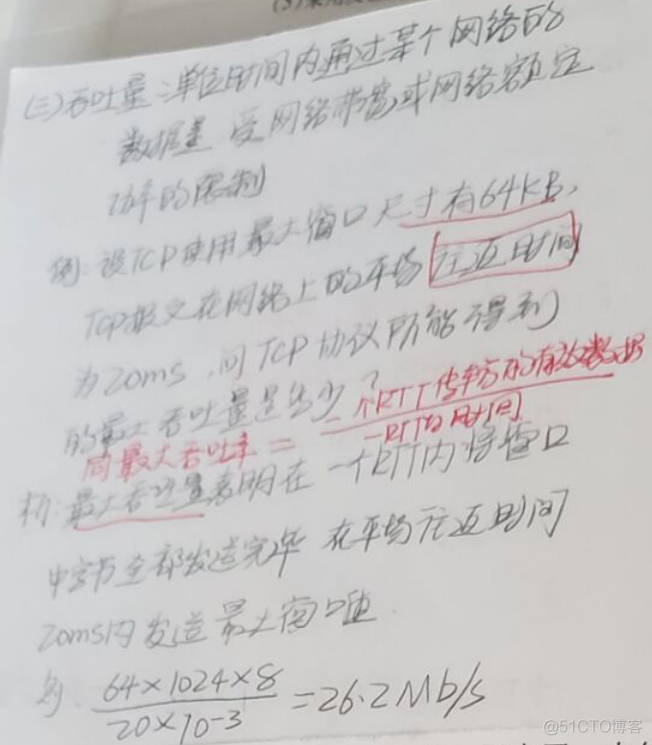 (三)吞吐量:单位时间内通过某个网络的
数据量 受网络带宽或网络额定
功率的限制
例:设TCP使用最大窗口尺寸有64KB,
TCP报文在网络上的平均往返时间
为20ms,问TCP协议所能得到
的最大吞吐量是多少?
同最大吞吐率 = 一个RTT传输的有效数据
一RTT的时间
析:最大吞吐量表明在一个RTT内将窗口
中字节全部发送完毕 在平均往返时间
20ms内发送最大窗口值
则 64×1024×8
20×10-3
=26.2Mb/s
@51CTO博客